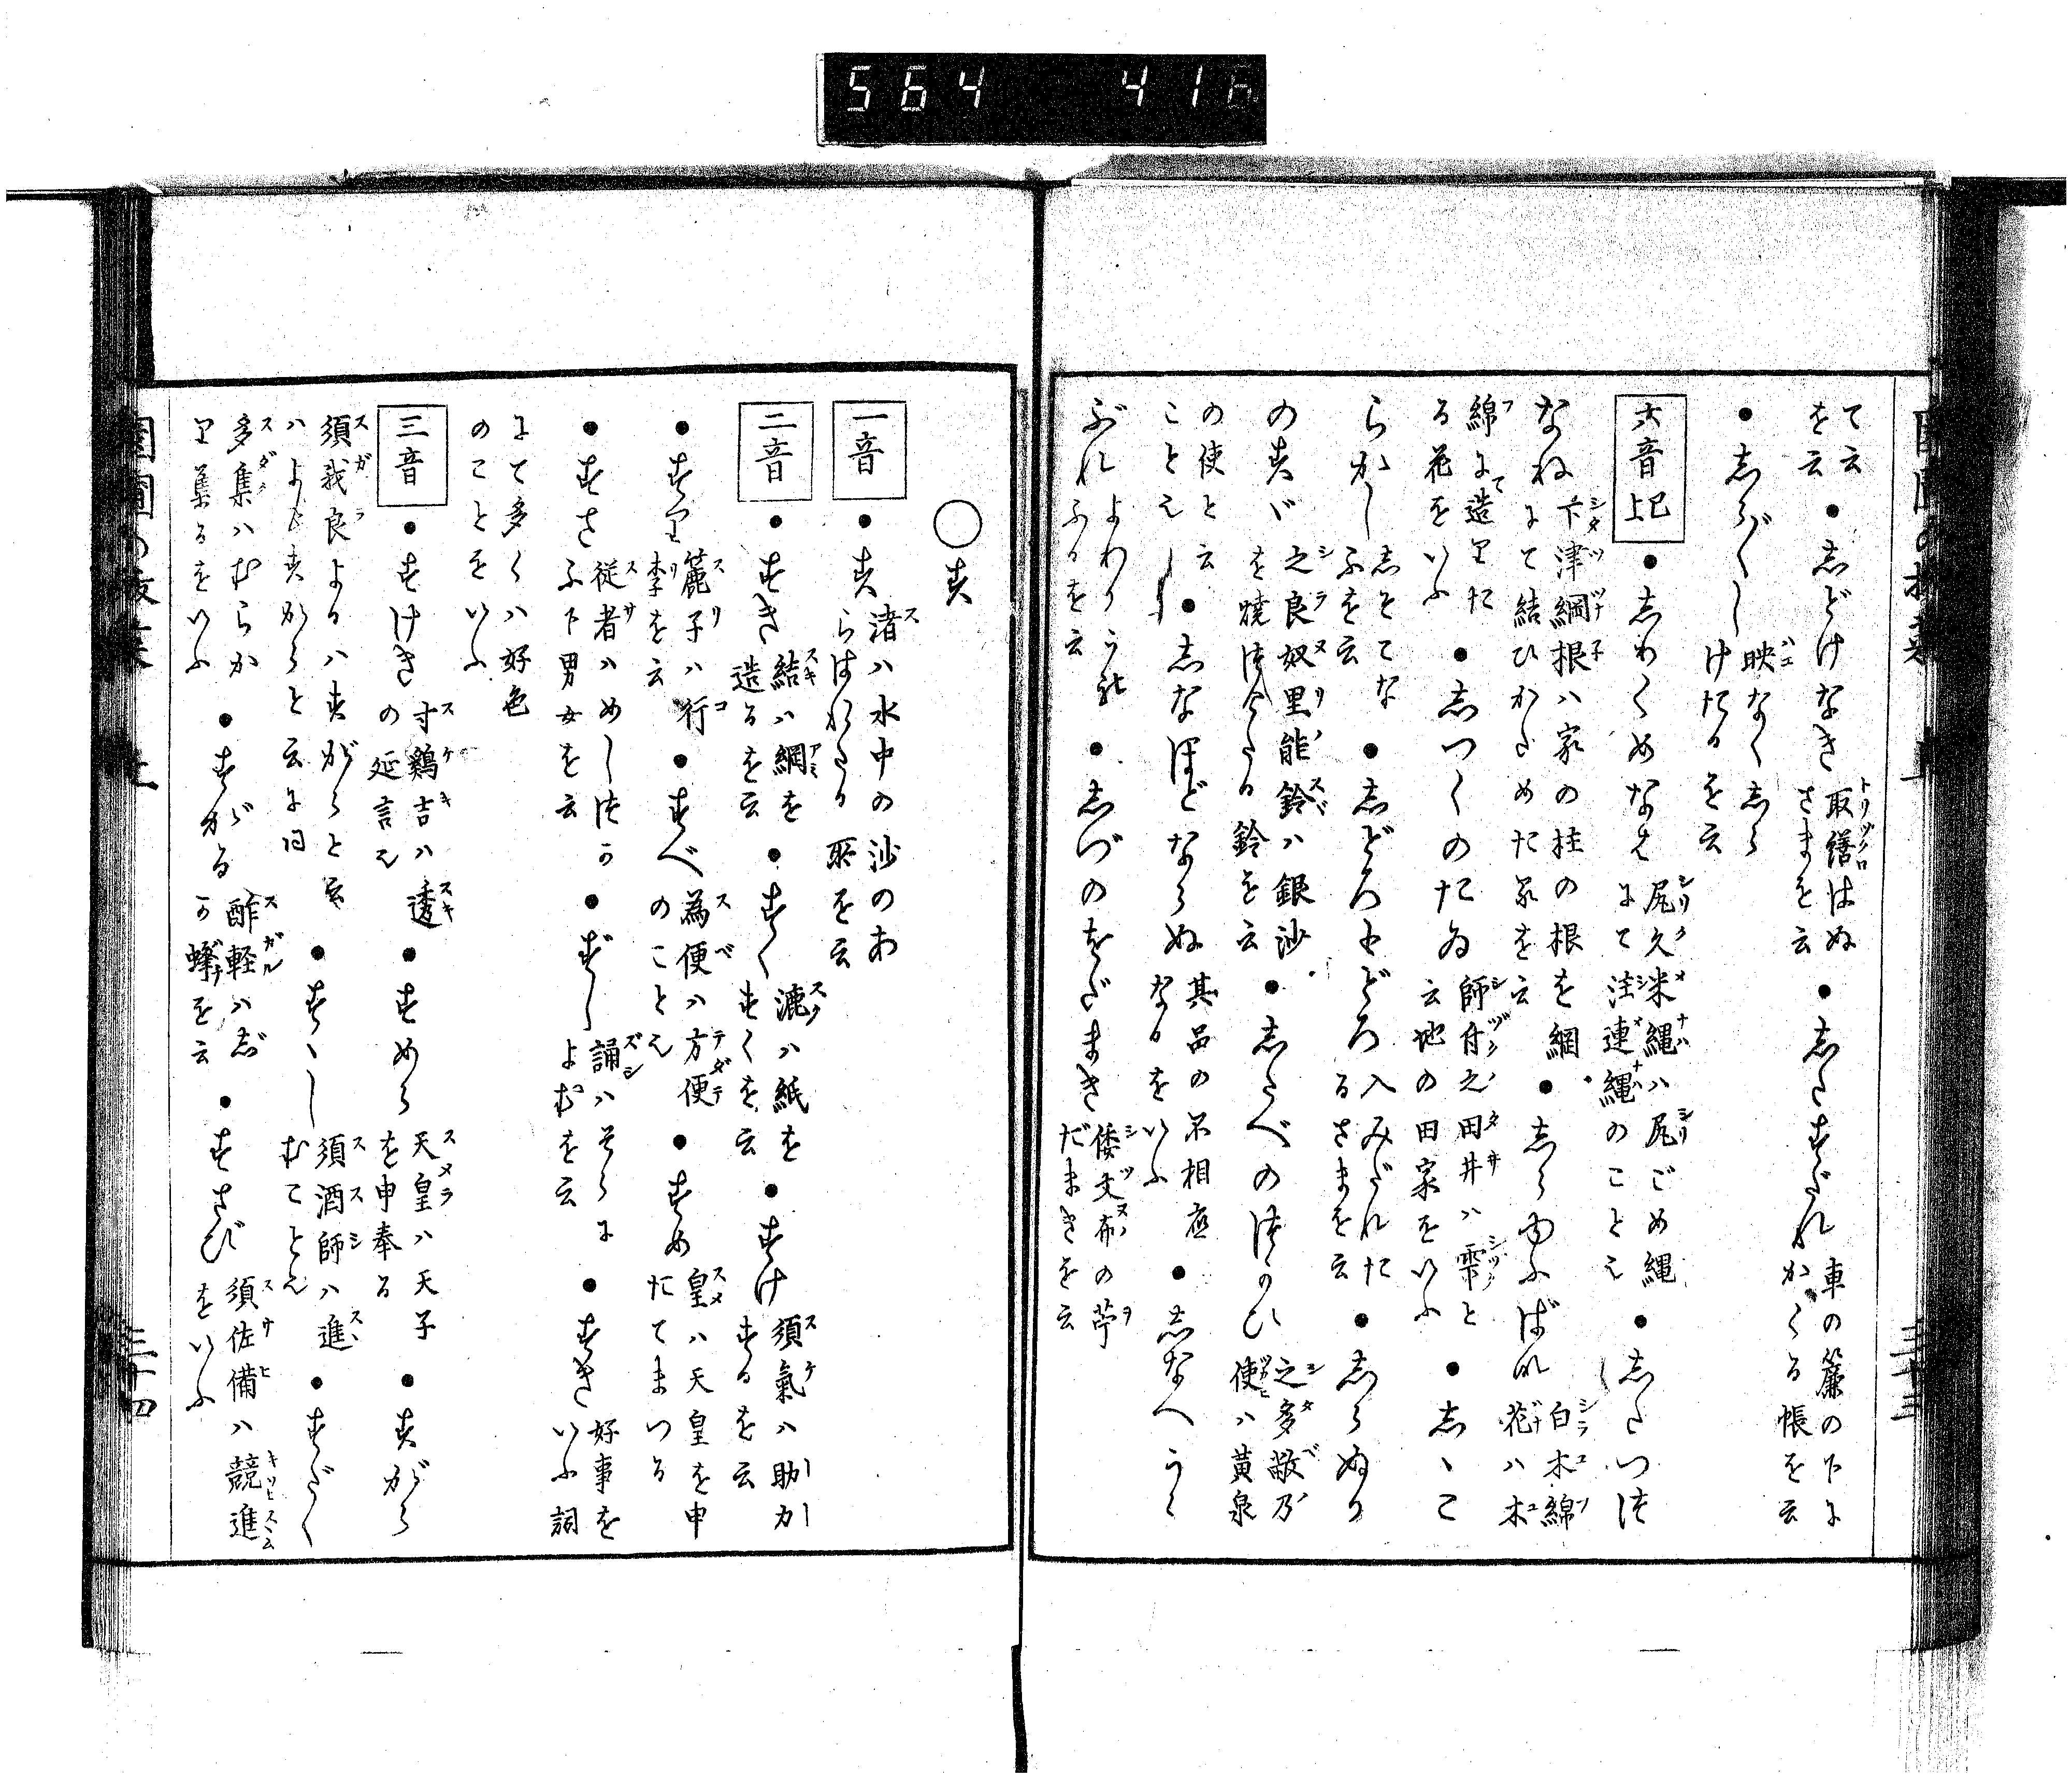 564 416
三十三
て云
を云
●しどけなき 取繕はぬ
さまを云
●したすだれ 車の簾の下に
かくる帳を云
●しらぐし 映なくしら
けたるを云
六音已上
●しりくめなは 尻久米縄ハ尻ごめ縄
にて注連縄のことえ
●したつつ
なね 下津綱根ハ家の柱の根を綱
にて結ひかためた家を云
●しらゆふばな 白木綿
花ハ木
綿にて造りた
る花をいふ
●しつくのたゐ 師付之田井ハ雫と
云地の田家をいふ
●しゝこ
らかし しそこな
ふを云
●しどろもどろ 入みだれた
るさまを云
●しらぬり
のすゞ 之良奴里能鈴ハ銀沙
を焼つけたる鈴を云
●したべのつかひ 之多敝乃
使ハ黄泉
の使と云
ことえ
●しなほどならぬ 其品の不相應
なるをいふ
●しなへうら
ぶれ よわりうれ
ふるを云
●しづのをだまき 倭文布の苧
だまきを云
○す
一音
●す 渚ハ水中の沙のあ
らはれたる所を云
二音
●すき 結ハ網を
造るを云
●すく 漉ハ紙を
すくを云
●すけ 須氣ハ助力
するを云
●すり 簏子ハ行
李を云
●すべ 為便ハ方便
のことえ
●すめ 皇ハ天皇を申
たてまつる
●ずさ 従者ハめしつか
ふ下男女を云
●ずし 誦ハそらに
よむを云
●すき 好事を
いふ詞
にて多くハ好色
のことをいふ
三音
●すけき 寸鷄吉ハ透
の延言え
●すめら 天皇ハ天子
を申奉る
●すがら
須我良よるハすがらと云
ハよもすがらと云に同
●すゝし 須酒師ハ進
むことえ
●すだく
多集ハむらか
り集るをいふ
●すがる 酢軽ハじ
か蜂を云
●すさび 須佐備ハ競進
をいふ
三十四